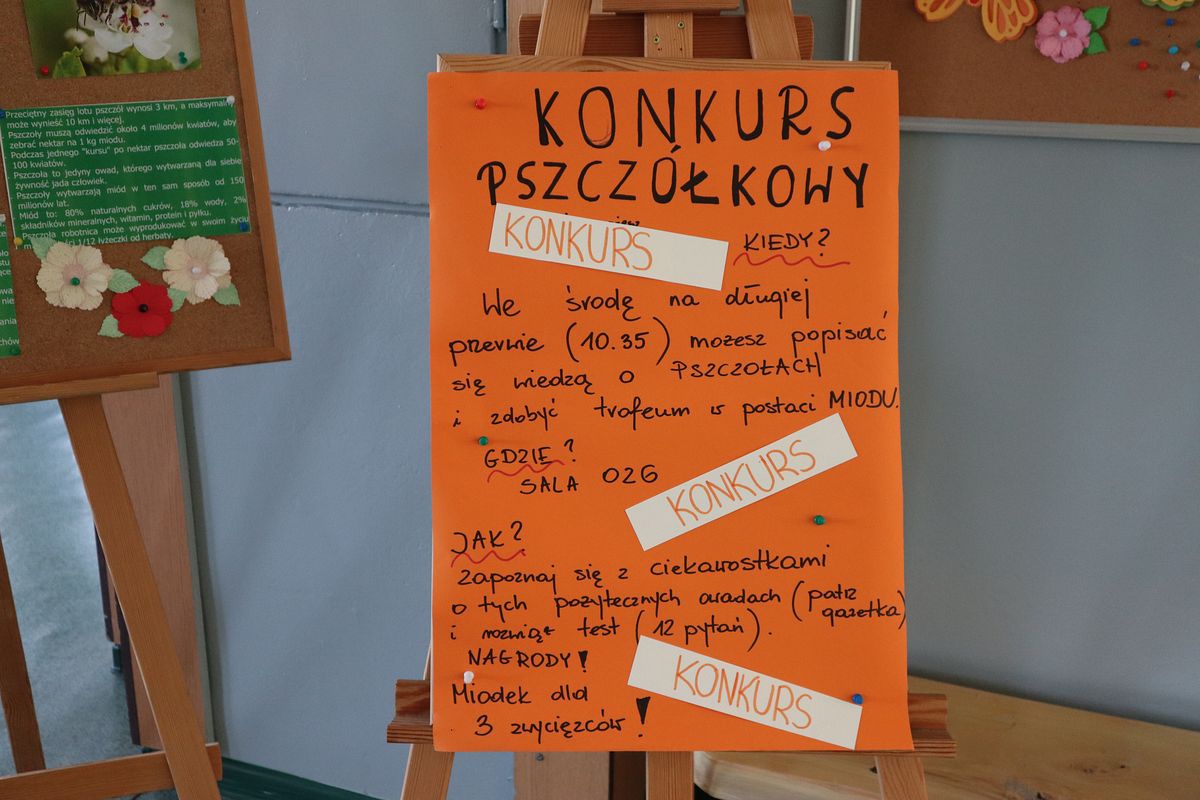 Przeciętny zasięg lotu pszczół wynosi 3 km, a maksymalny
może wynieść 10 km i więcej.
Pszczoły muszą odwiedzić około 4 milionów kwiatów, aby
zebrać nektar na 1 kg miodu.
Podczas jednego "kursu" po nektar pszczoła odwiedza 50-
100 kwiatów.
Pszczoła to jedyny owad, którego wytwarzaną dla siebie
żywność jada człowiek.
Pszczoły wytwarzają miód w ten sam sposób od 150
milionów lat.
Miód to: 80% naturalnych cukrów, 18% wody, 2%
składników mineralnych, witamin, protein i pyłku.
Pszczoła robotnica może wyprodukować w swoim życiu
1/12 łyżeczki od herbaty.
KONKURS
PSZCZÓŁKOWY
KONKURS
KIEDY?
We środę na długiej
przerwie (10.35) możesz popisać
się wiedzą o PSZCZOŁACH
i zdobyć trofeum w postaci MIODU.
GDZIE?
SALA 026
KONKURS
JAK?
Zapoznaj się z ciekawostkami
o tych pożytecznych owadach (patrz
gazetka)
i rozwiąż test (12 pytań).
NAGRODY!
Miodek dla
3 zwycięzców!
KONKURS